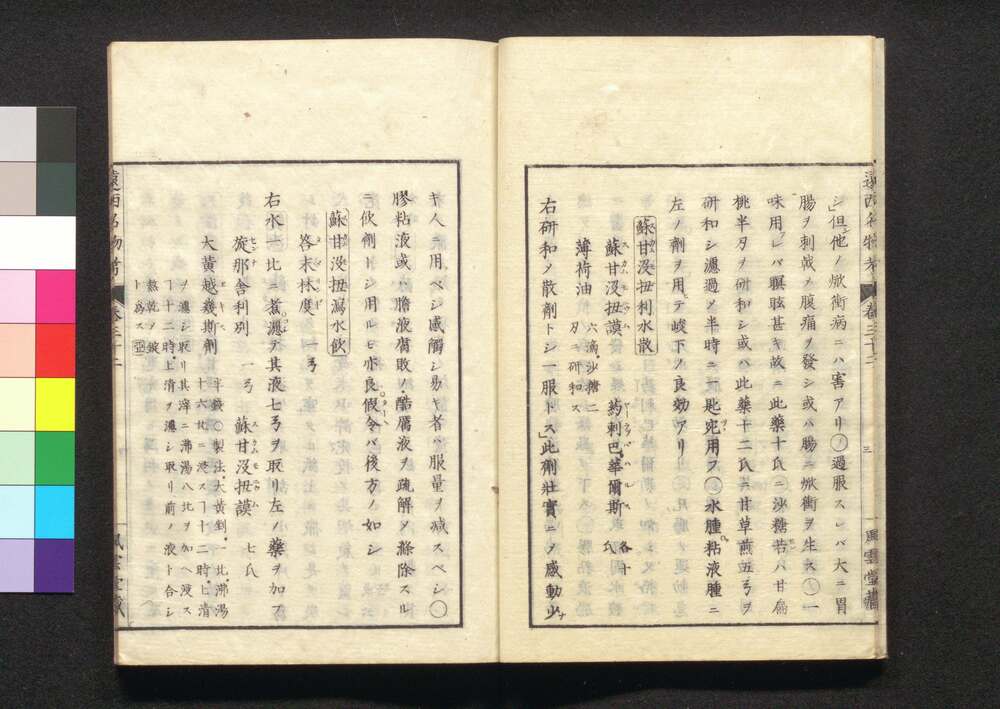 遠西名物考
巻三十二
三
風雲堂蔵
シ但他ノ焮衝病ニハ害アリ○過服スレバ大ニ胃
腸ヲ刺戟メ腹痛ヲ發シ或ハ腸ニ焮衝ヲ生ス○一
味用レバ瞑眩甚キ故ニ此藥十氏ニ沙糖若ハ甘扁
桃半刃ヲ研和シ或ハ此藥十二氏ニ甘草煎五弓ヲ
研和シ濾過メ半時ニ一匙宛用フ○水腫粘液腫ニ
左ノ劑ヲ用テ峻下メ良効アリ
蘇甘没扭利水散
蘇甘没扭謨 葯刺巴華爾斯 各十氏
薄荷油 六滴 沙糖二刃ニ研和ス
右研和メ散劑トシ一服トス」此劑壯實ニメ感動少ナ
キ人ニ用ベシ感觸シ易キ者ハ服量ヲ減スベシ○
膠粘液或ハ膽液腐敗ノ酷厲液ヲ疏解メ滌除スル
ニ飲劑トシ用ルモ亦良假令バ後方ノ如シ
蘇甘没扭瀉水飲
答末林度 一弓
右水一比ニ煮濾メ其液七弓ヲ取リ左ノ藥ヲ加フ
旋那舎利別 一弓 蘇甘没扭謨 七氏
大黄越幾斯劑 半錢○製法大黄剉一比沸湯
十六比ニ浸スヿ十二時上清
ヲ濾シ取リ其滓ニ沸湯八比ヲ加ヘ浸ス
ヿ十二時上清ヲ濾シ取リ前ノ液ト合シ
熬乾メ錠
ト爲ス
遠西名物考
巻三十二
風雲堂蔵